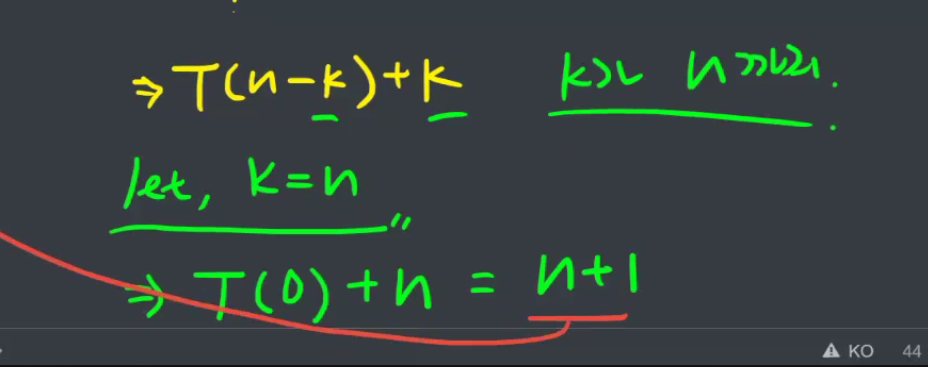 ⇒ T(n-k)+k k가 n까지.
let, k=n
⇒ T(0)+n = n+1
KO 44